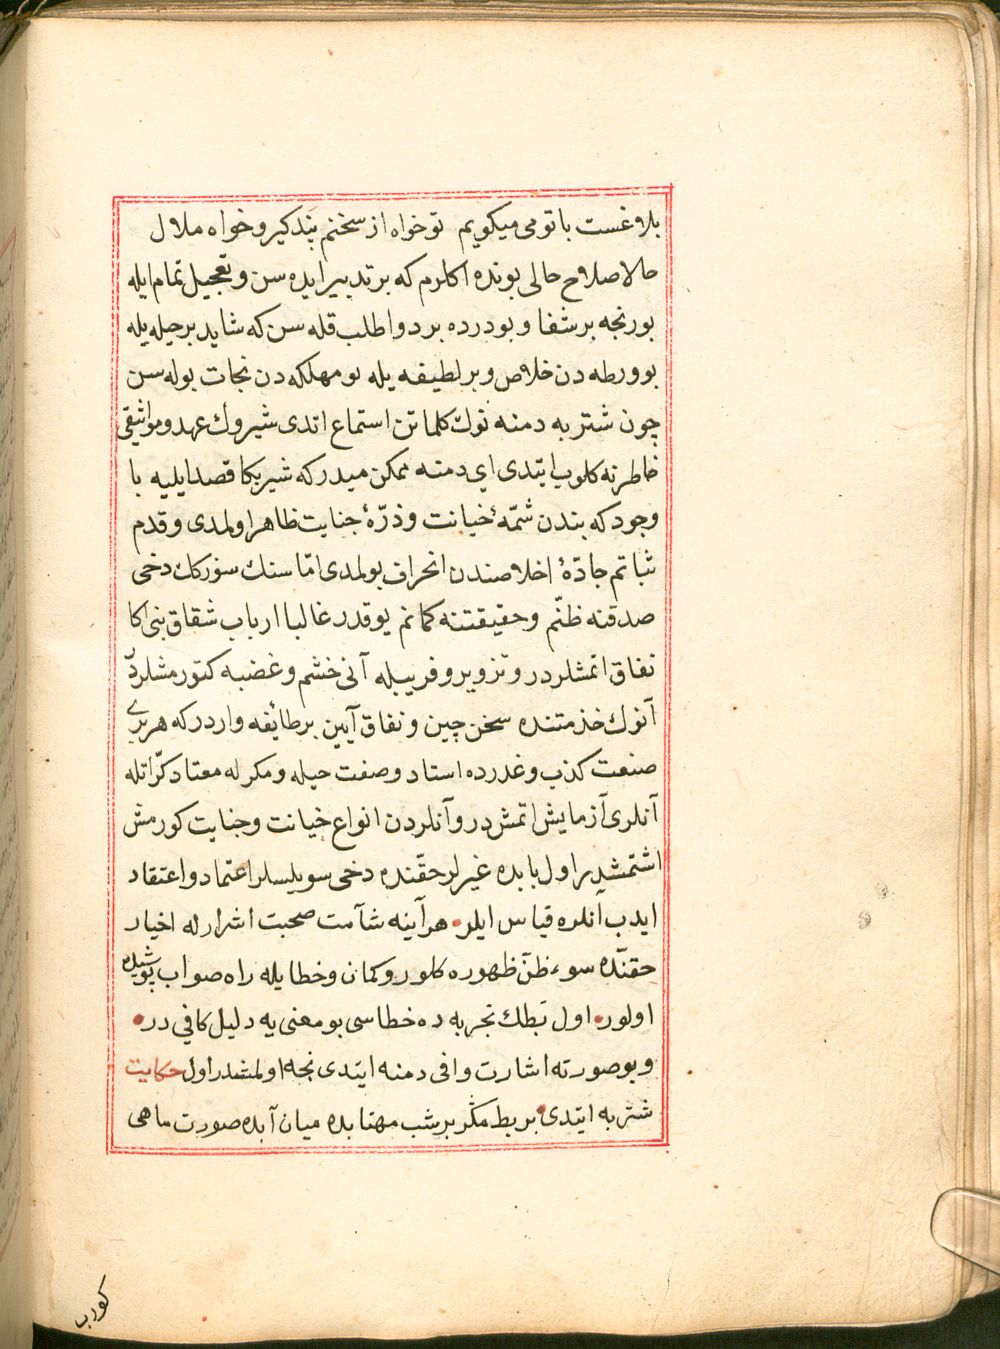 بلاغست با تو می میکویم تو خواه از سخنم پند کیر و خواه ملال
حالا صلاح حالی بونده اکلرم که بر تدبیر ایده سن و تعجیل تمام ایله
بو رنجه بر شفا و بو درده بر دوا طلب قله سن که شاید بر حیله یله
بو ورطه دن خلاص و بر لطیفه یله بو مهلکه دن نجات بوله سن
چون شتربه دمنه نوك کلماتن استماع اتدی شیروك عهد و مواثیقی
خاطرنه کلوب ایتدی ای دمنه ممکن میدر که شیر بکا قصد ایلیه با
وجود که بندن شمّهٔ خیانت و ذرّهٔ جنایت ظاهر اولمدی و قدم
ثباتم جادّهٔ اخلاصندن انحراف بولمدی امّا سنك سوزکك دخی
صدقنه ظنّم و حقیقتنه کمانم یوقدر غالبا ارباب شقاق بنی اکا
نفاق اتمشلردر و تزویر و فریبیله آنی خشم و غضبه کتورمشلردر
آنوك خذمتنده سخن چین و نفاق آیین بر طائفه واردر که هر بری
صنعت کذب و غدرده استاد و صفت حیله و مکرله معتاد کرّاتله
آنلری آزمایش اتمش در و آنلردن انواع خیانت و جنایت کورمش
اشتمشدر اول بابده غیرلر حقّنده دخی سویلسلر اعتماد و اعتقاد
ایدب آنلره قیاس ایلر • هر آینه شآمت صحبت اشرارله اخیار
حقنّده سوء ظنّ ظهوره کلور و کمان و خطایله راه صواب پوشیده
اولور • اول بَطك تجربه ده خطاسی بو معنی یه دلیل کافی در •
و بو صورته اشارت وافی دمنه ایتدی نجه اولمشدر اول حکایت
شتربه ایتدی • بر بط مکر بر شب مهتابده میان آبده صورت ماهی
کورب